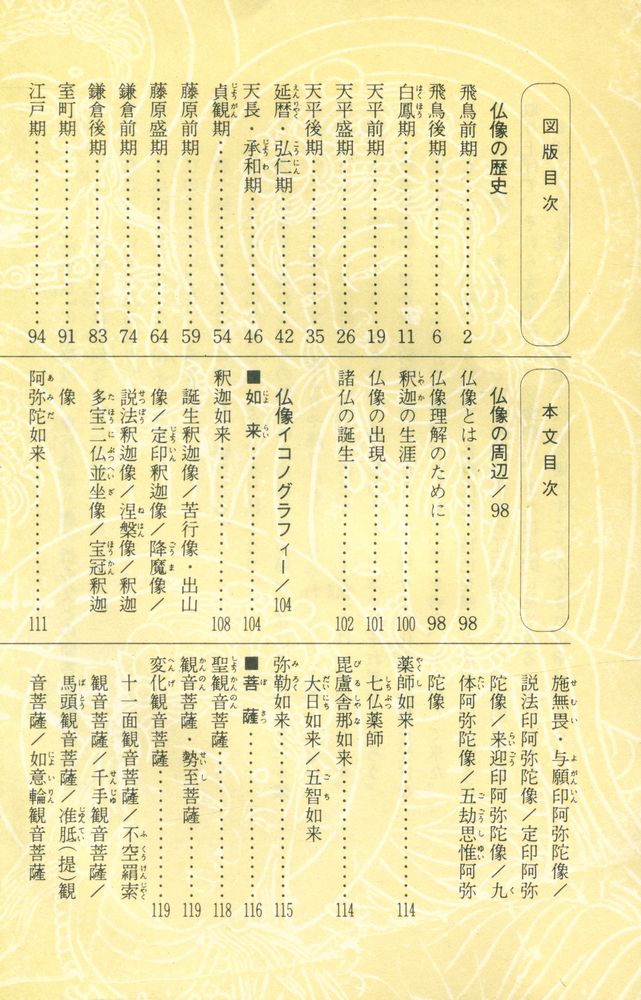 図版目次
仏像の歴史
飛鳥前期……………………2
飛鳥後期……………………6
白鳳期……………………11
天平前期……………………19
天平盛期……………………26
天平後期……………………35
延暦・弘仁期……………………42
天長・承和期……………………46
貞観期……………………54
藤原前期……………………59
藤原盛期……………………64
鎌倉前期……………………74
鎌倉後期……………………83
室町期……………………91
江戸期……………………94
本文目次
仏像の周辺/98
仏像とは……………………98
仏像理解のために……………………98
釈迦の生涯……………………100
仏像の出現……………………101
諸仏の誕生……………………102
仏像イコノグラフィー/104
■如来……………………104
釈迦如来……………………108
誕生釈迦像/苦行像・出山
像/定印釈迦像/降魔像/
説法釈迦像/涅槃像/釈迦
多宝二仏並坐像/宝冠釈迦
像
阿弥陀如来……………………111
施無畏・与願印阿弥陀像/
説法印阿弥陀像/定印阿弥
陀像/来迎印阿弥陀像/九
体阿弥陀像/五劫思惟阿弥
陀像
薬師如来……………………114
七仏薬師
毘盧舎那如来……………………114
大日如来/五智如来
弥勒如来……………………115
■菩薩……………………116
聖観音菩薩……………………118
観音菩薩・勢至菩薩……………………119
変化観音菩薩……………………119
十一面観音菩薩/不空羂索
観音菩薩/千手観音菩薩/
馬頭観音菩薩/准胝(提)観
音菩薩/如意輪観音菩薩